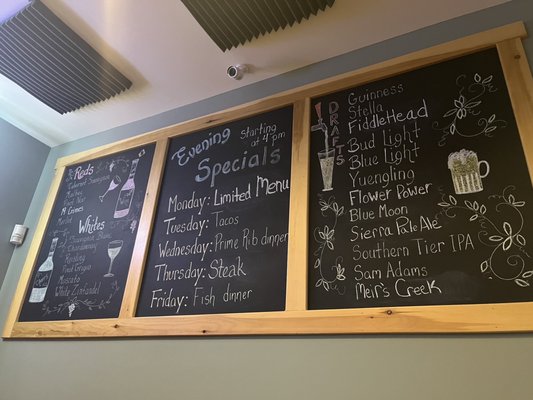 Reds
Cabernet Sauvignon
Malbec
Pinot Noir
14 Knives
Merlot
Whites
Sauvignon Blanc
Chardonnay
Riesling
Pinot Grigio
Moscato
White Zinfandel
Evening starting
at 4 pm
Specials
Monday: Limited Menu
Tuesday: Tacos
Wednesday: Prime Rib dinner
Thursday: Steak
Friday: Fish dinner
DRAFTS
Guinness
Stella
Fiddlehead
Bud Light
Blue Light
Yuengling
Flower Power
Blue Moon
Sierra Pale Ale
Southern Tier IPA
Sam Adams
Meir's Creek